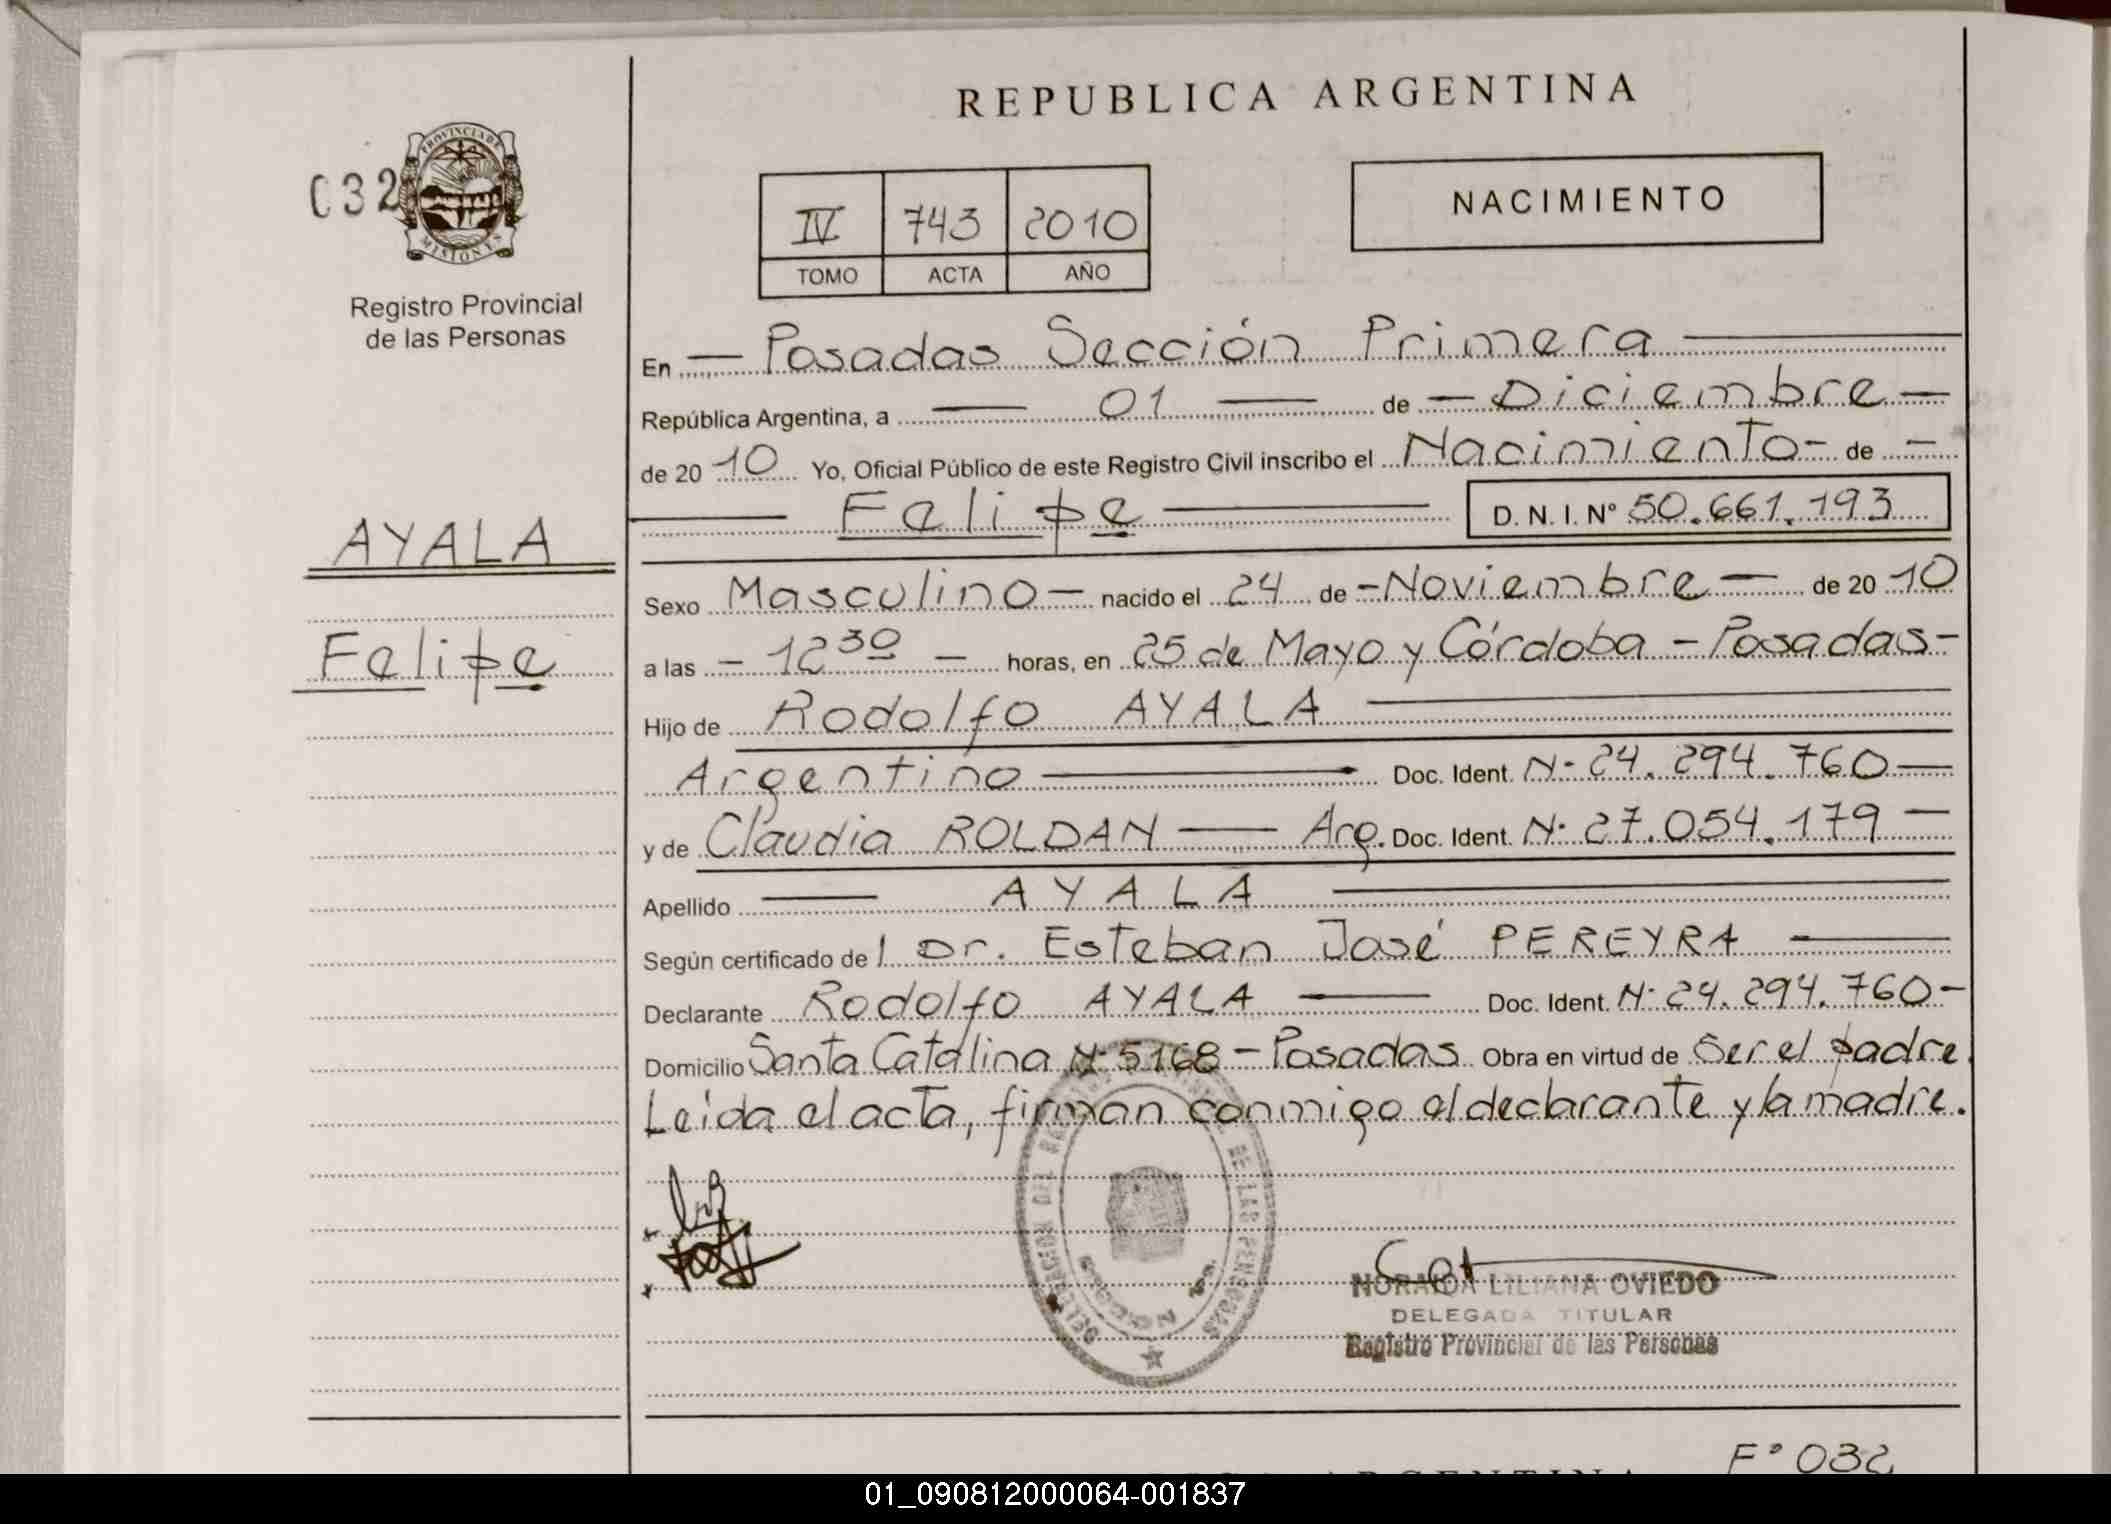 REPUBLICA ARGENTINA
032
PROVINCIA DE MISIONES
Registro Provincial
de las Personas
IV 743 2010
TOMO ACTA AÑO
NACIMIENTO
En — Posadas Sección Primera —
República Argentina, a — 01 — de — Diciembre —
de 20 10 Yo, Oficial Público de este Registro Civil inscribo el Nacimiento - de —
— Felipe — D. N. I. N° 50.661.193
AYALA
Felipe
Sexo Masculino — nacido el 24 de - Noviembre — de 20 10
a las — 12 30 — horas, en 25 de Mayo y Córdoba - Posadas -
Hijo de Rodolfo AYALA —
Argentino — Doc. Ident. N· 24.294.760 —
y de Claudia ROLDAN — Arg. Doc. Ident. N· 27.054.179 —
Apellido — AYALA —
Según certificado de l Dr. Esteban José PEREYRA —
Declarante Rodolfo AYALA — Doc. Ident. N· 24.294.760 -
Domicilio Santa Catalina N· 5168 - Posadas Obra en virtud de Ser el padre.
Leída el acta, firman conmigo el declarante y la madre.
DELEGACION DEL DE LAS PERSONAS
LILIANA OVIEDO
DELEGADA TITULAR
Registro Provincial de las Personas
F° 032
ARGENTINA
01_090812000064-001837